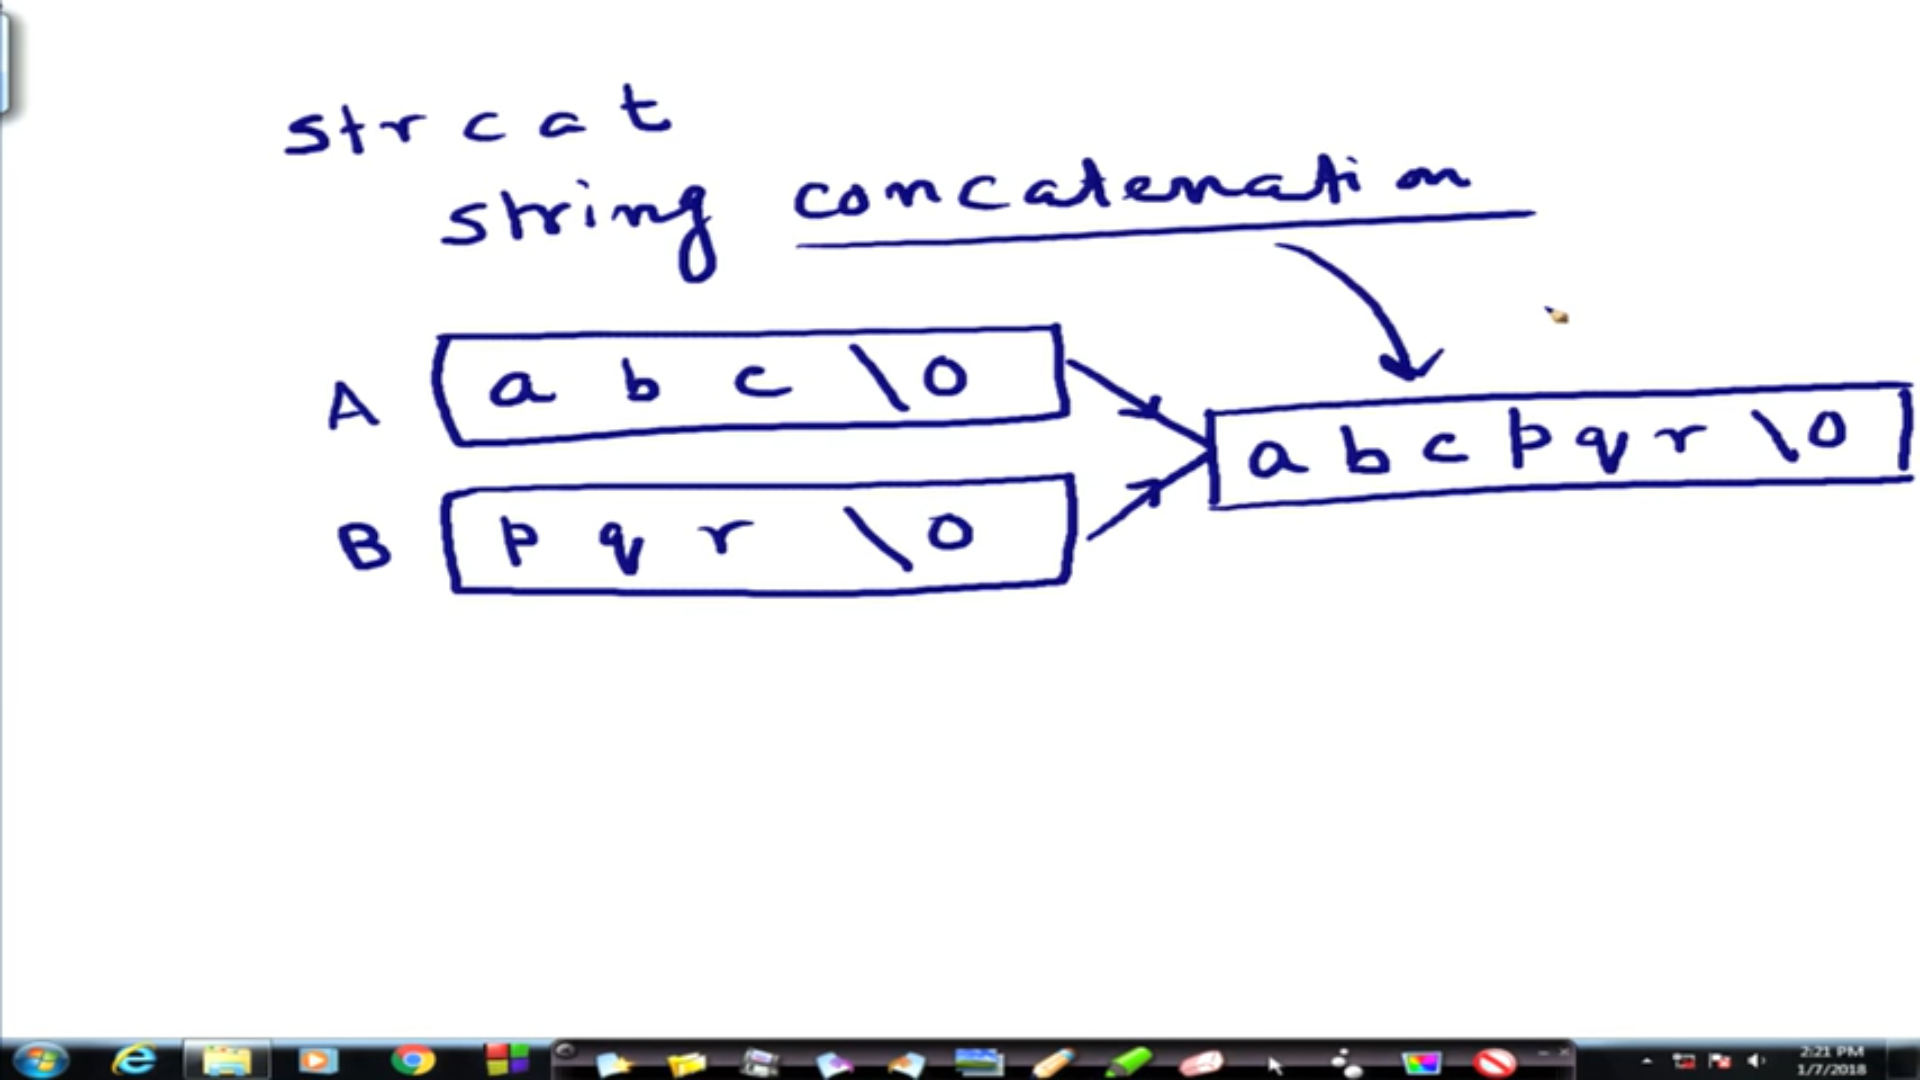 strcat
string concatenation
A a b c \0
B p q r \0
a b c p q r \0
2:21 PM
1/7/2018